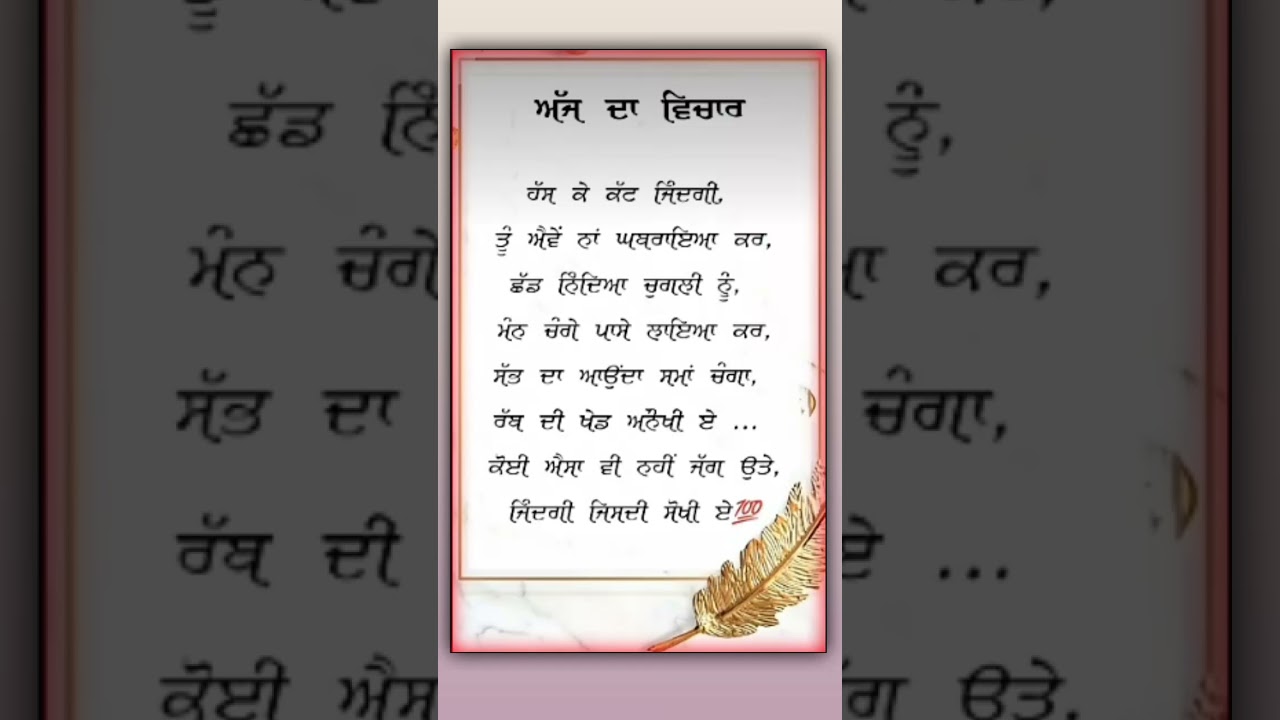 ਅੱਜ ਦਾ ਵਿਚਾਰ
ਹੱਸ ਕੇ ਕੱਟ ਜਿੰਦਗੀ,
ਤੂੰ ਐਵੇਂ ਨਾਂ ਘਬਰਾਇਆ ਕਰ,
ਛੱਡ ਨਿੰਦਿਆ ਚੁਗਲੀ ਨੂੰ,
ਮੰਨ ਚੰਗੇ ਪਾਸੇ ਲਾਇਆ ਕਰ,
ਸੱਭ ਦਾ ਆਉਂਦਾ ਸਮਾਂ ਚੰਗਾ,
ਰੱਬ ਦੀ ਖੇਡ ਅਨੌਖੀ ਏ ...
ਕੋਈ ਐਸਾ ਵੀ ਨਹੀਂ ਜੱਗ ਉਤੇ,
ਜਿੰਦਗੀ ਜਿਸਦੀ ਸੌਖੀ ਏ💯